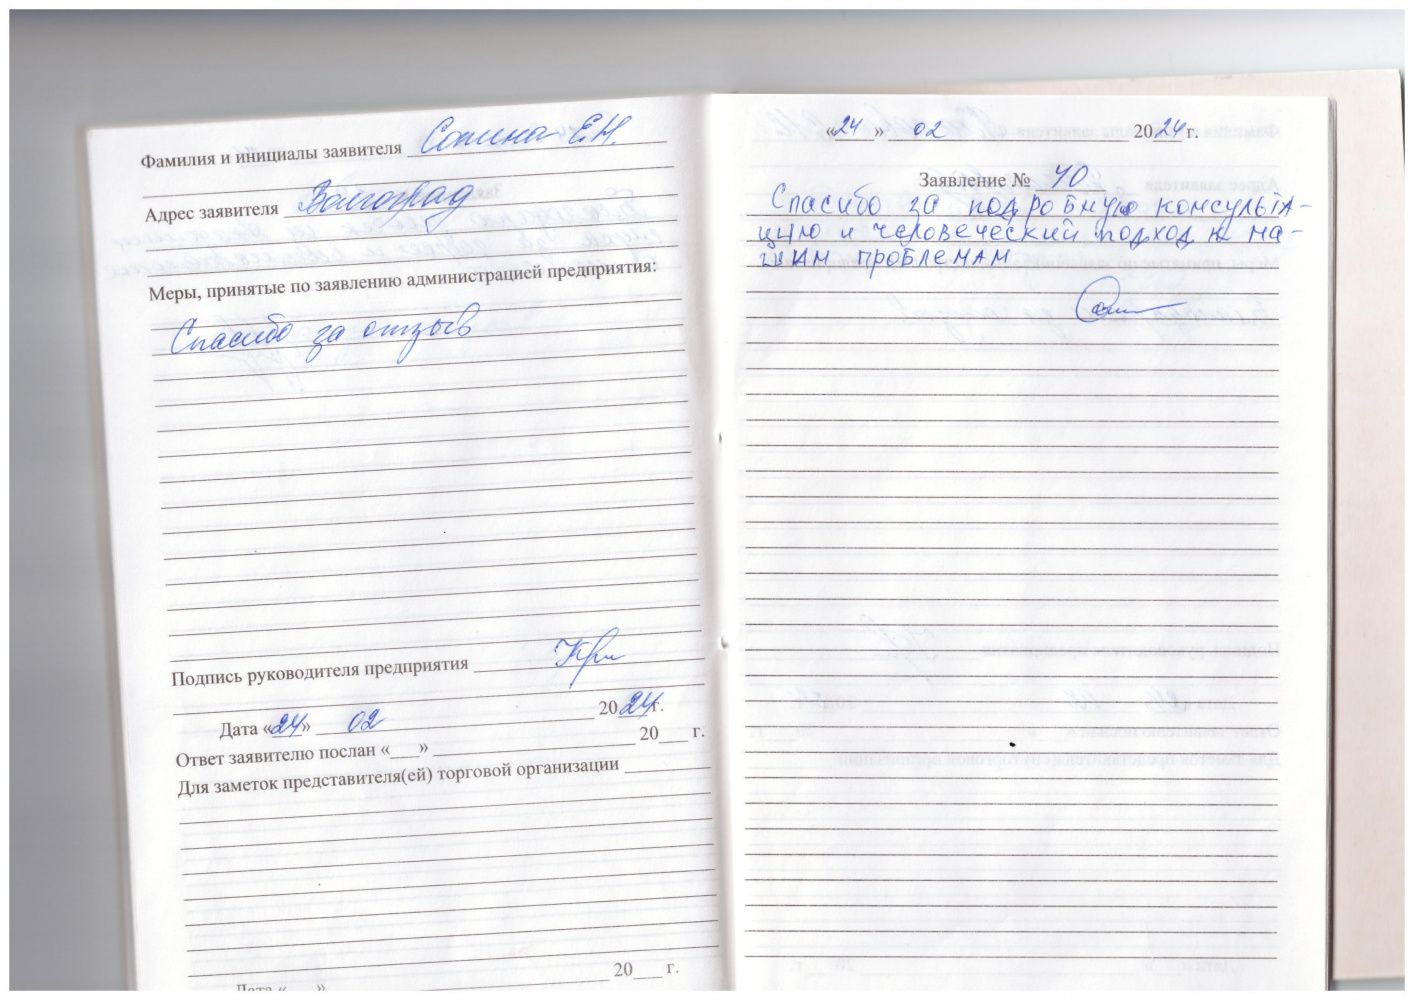 Фамилия и инициалы заявителя Сопина Е.Н.
Адрес заявителя Волгоград
Меры, принятые по заявлению администрацией предприятия:
Спасибо за отзыв
Подпись руководителя предприятия
Дата «24» 02 2024г.
Ответ заявителю послан «___» 20___ г.
Для заметок представителя(ей) торговой организации
20___ г.
Дата «___»
«24» 02 2024г.
Заявление № 40
Спасибо за подробную консульта-
цию и человеческий подход к на-
шим проблемам